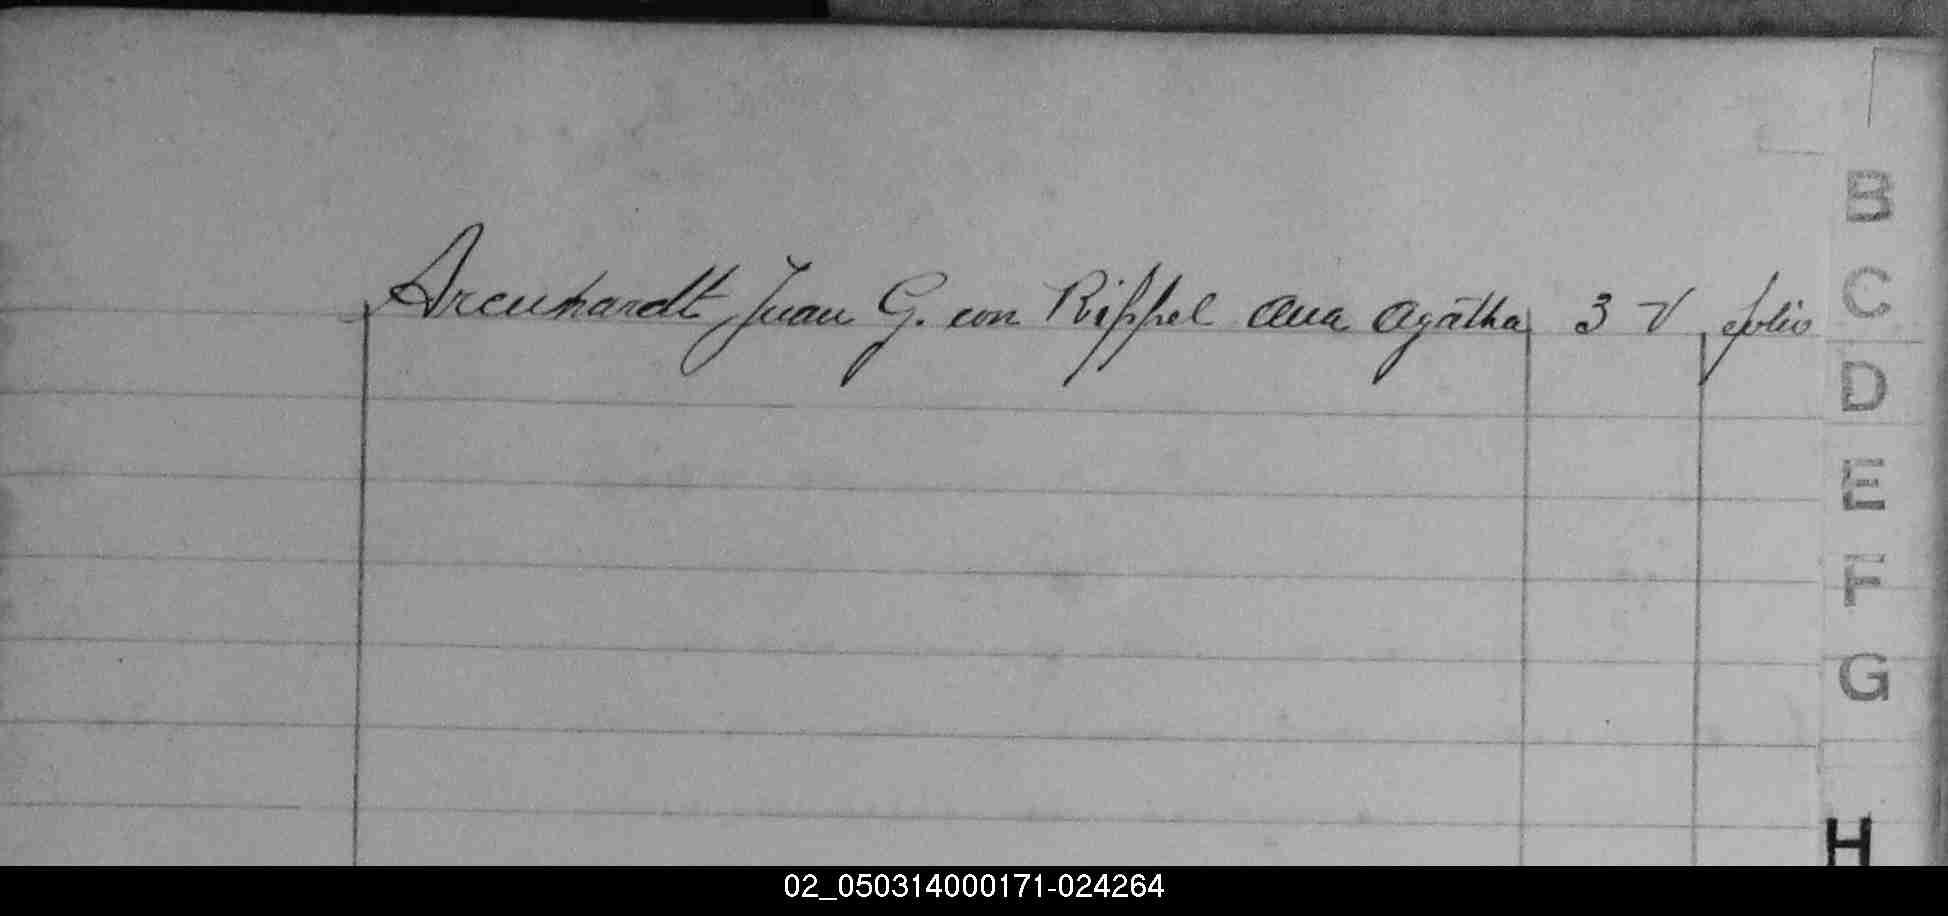 B
Arenhardt Juan G. con Rippel Ana Agatha 3 V folio
C
D
E
F
G
H
02_050314000171-024264